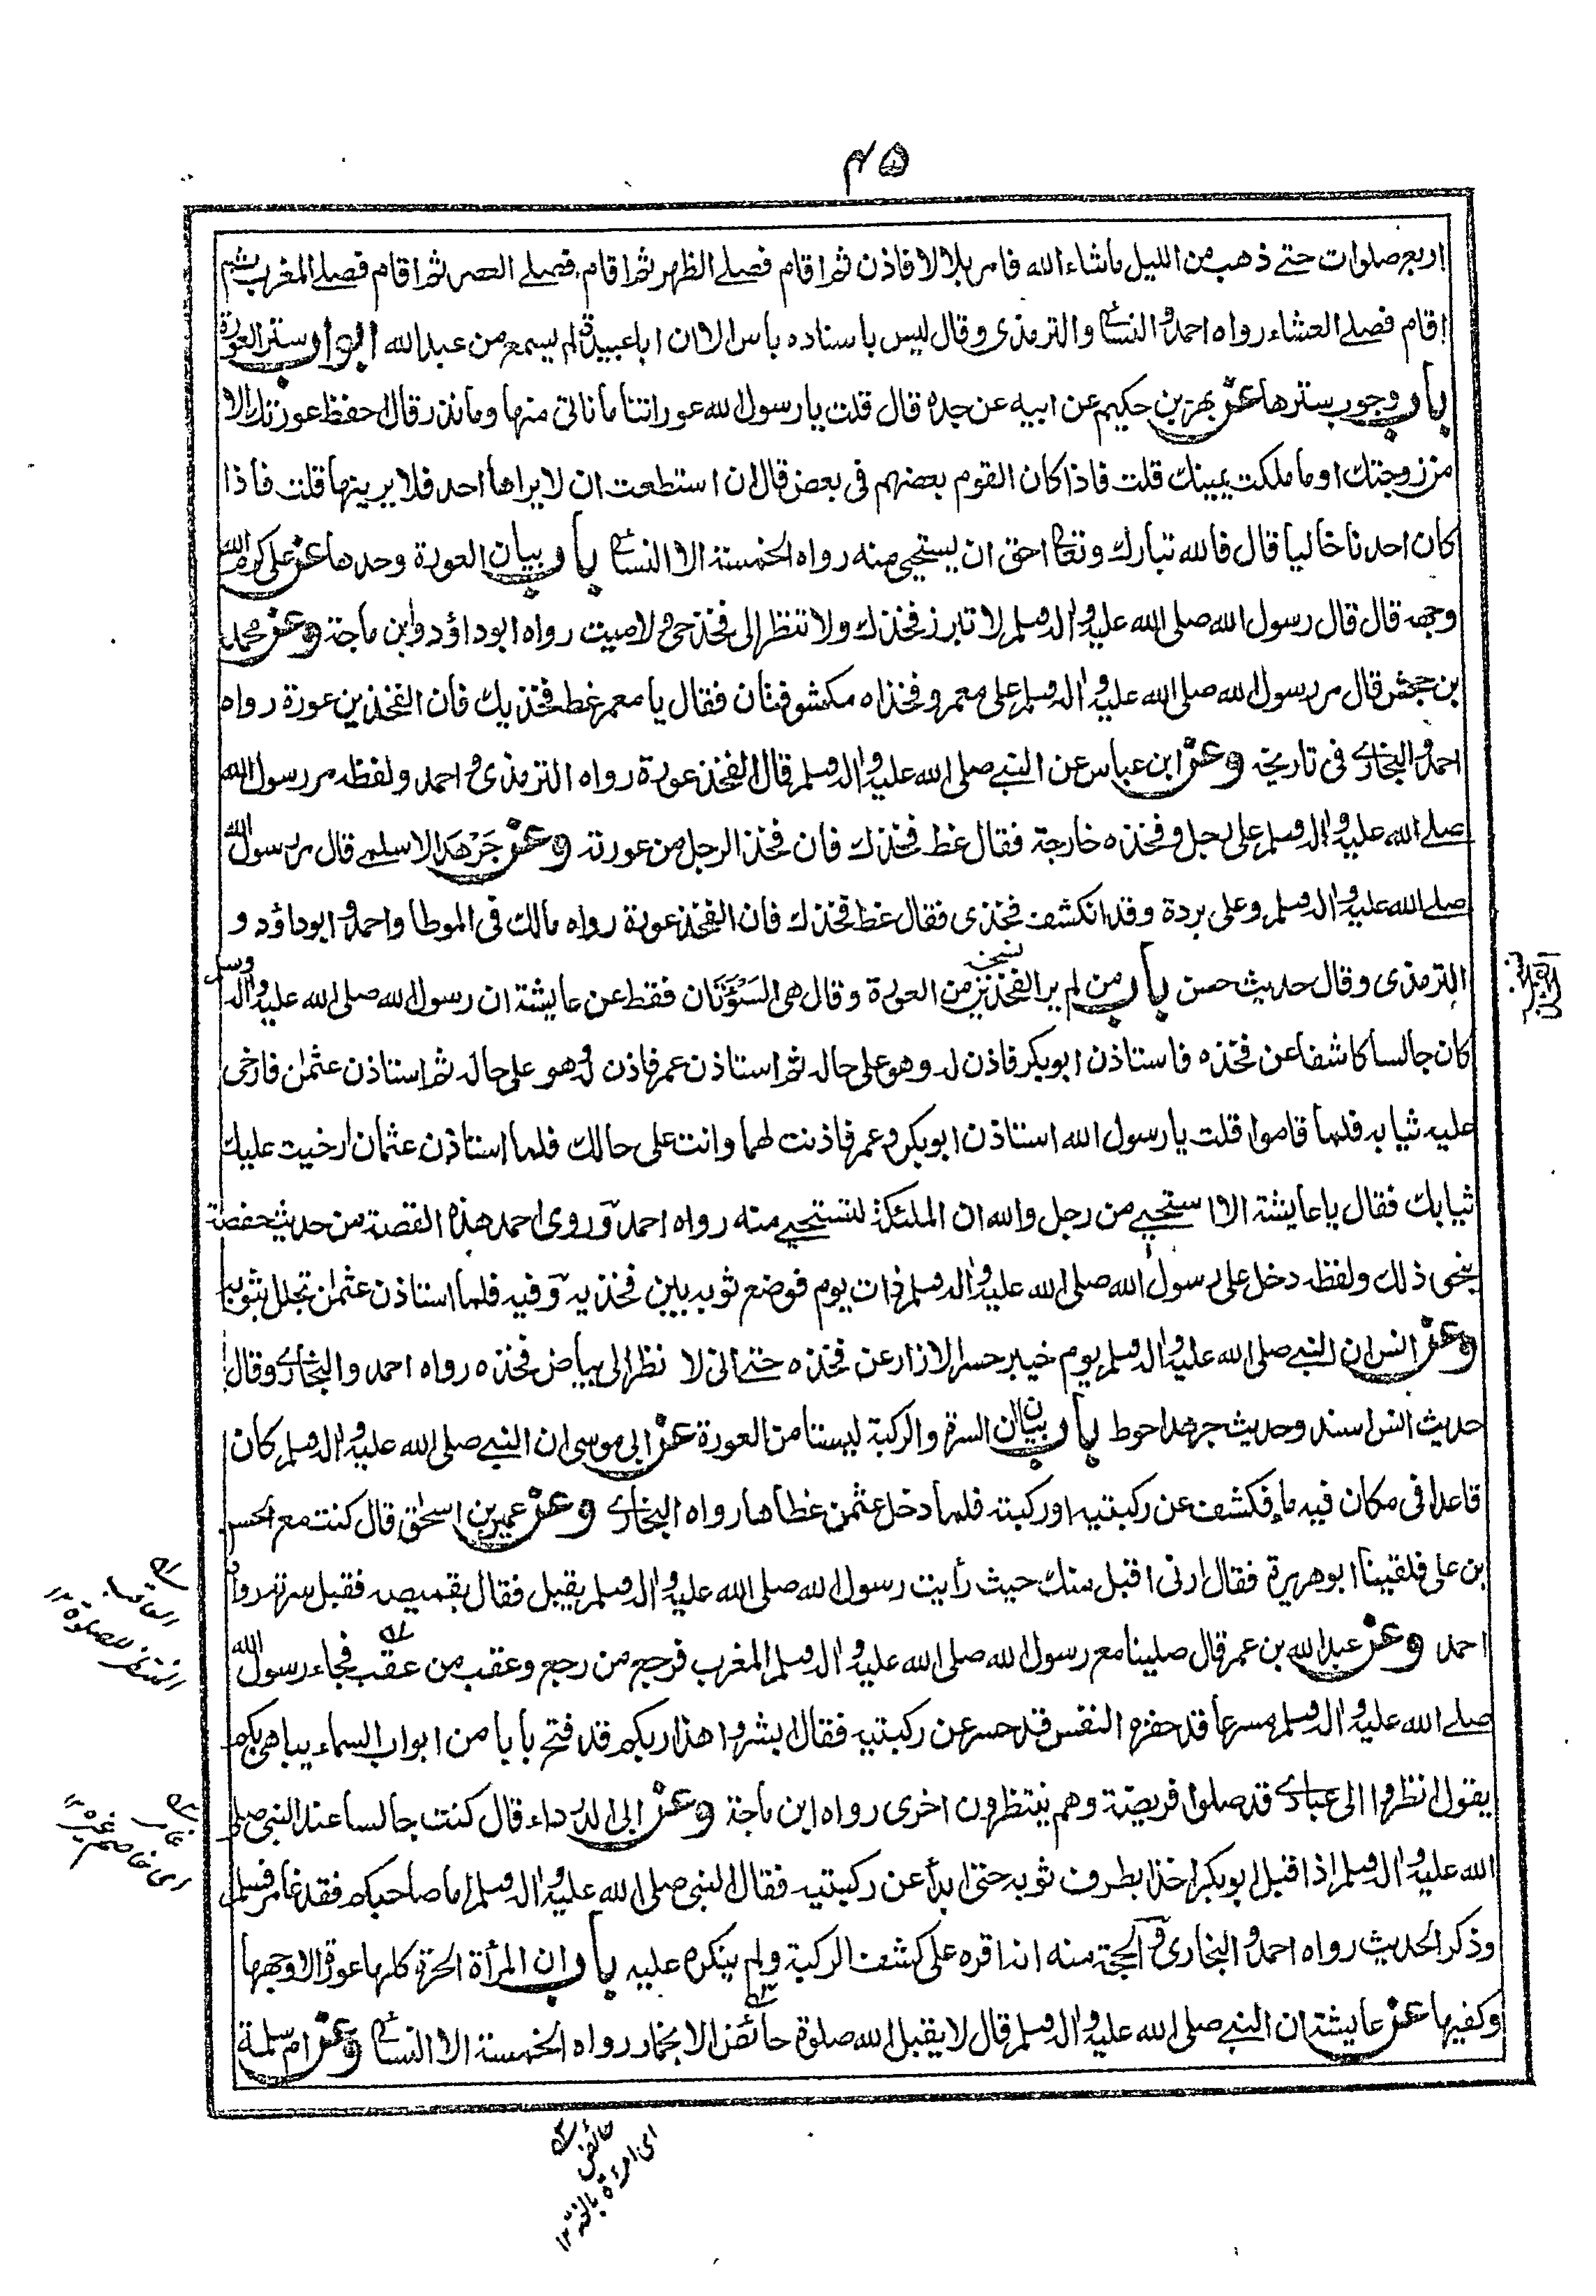 ٤٥
اربع صلوات حتے ذهب من الليل ماشاء الله فامر بلالا فاذن ثم اقام فصلے الظهر ثم اقام فصلے العصر ثم اقام فصلے المغرب ثم
اقام فصلے العشاء رواه احمد و النسائے والترمذی وقال ليس باسناده باس الا ان اباعبيدة لم يسمع من عبدالله ابواب ستر العورة
باب وجوب سترها عن بهز بن حكيم عن ابيه عن جده قال قلت يا رسول الله عوراتنا ما ناتی منها وما نذر قال احفظ عورتك الا
من زوجتك او ما ملكت يمينك قلت فاذا كان القوم بعضهم فی بعض قال ان استطعت ان لا يراها احد فلا يرينها قلت فاذا
كان احدنا خاليا قال فالله تبارك وتعالے احق ان يستحيی منه رواه الخمسة الا النسائے باب بيان العورة وحدها عن علی كرم الله
وجهه قال قال رسول الله صلی الله عليه و اله وسلم لا تبرز فخذك ولا تنظر الی فخذ حی و لا ميت رواه ابوداؤد و ابن ماجة وعن محمد
بن جحش قال مر رسول الله صلی الله عليه و اله وسلم علی معمر و فخذاه مكشوفتان فقال يا معمر غط فخذيك فان الفخذين عورة رواه
احمد و البخاری فی تاريخه وعن ابن عباس عن النبے صلی الله عليه و اله وسلم قال الفخذ عورة رواه الترمذی و احمد ولفظه مر رسول الله
صلے الله عليه و اله وسلم علی رجل و فخذه خارجة فقال غط فخذك فان فخذ الرجل من عورته وعن جَرْهَد الاسلمے قال مر رسول الله
صلے الله عليه و اله وسلم وعلی بردة وقد انكشفت فخذی فقال غط فخذك فان الفخذ عورة رواه مالك فی الموطا واحمد و ابوداؤد و
الترمذی وقال حديث حسن باب من لم ير الفخذين من العورة وقال هی السَوْءَتَان فقط عن عايشة ان رسول الله صلی الله عليه و اله وسلم
نسخه
كان جالسا كاشفا عن فخذه فاستاذن ابوبكر فاذن له وهو علی حاله ثم استاذن عمر فاذن له و هو علی حاله ثم استاذن عثمن فارخی
عليه ثيابه فلما قاموا قلت يا رسول الله استاذن ابوبكر و عمر فاذنت لهما وانت علی حالك فلما استاذن عثمان ارخيت عليك
ثيابك فقال يا عايشة الا استحيے من رجل والله ان الملئكة لتستحيے منه رواه احمد و روی احمد هذه القصة من حديث حفصة
بنحو ذلك ولفظه دخل علی رسول الله صلی الله عليه و اله وسلم ذات يوم فوضع ثوبه بين فخذيه و فيه فلما استاذن عثمن تجلل بثوبه
وعن انس ان النبے صلی الله عليه و اله وسلم يوم خيبر حسر الازار عن فخذه حتے انی لا نظر الی بياض فخذه رواه احمد والبخاری وقال
حديث انس اسند وحديث جرهد احوط باب بيان ان السرة والركبة ليستا من العورة عن ابی موسی ان النبے صلی الله عليه و اله وسلم كان
قاعدا فی مكان فيه ماء فكشف عن ركبتيه او ركبته فلما دخل عثمن غطاها رواه البخاری وعن عمير بن اسحٰق قال كنت مع الحسن
بن علی فلقينا ابوهريرة فقال ارنی اقبل منك حيث رأيت رسول الله صلی الله عليه و اله وسلم يقبل فقال بقميصه فقبل سرته رواه
احمد وعن عبدالله بن عمر قال صلينا مع رسول الله صلی الله عليه و اله وسلم المغرب فرجع من رجع وعقب من عقب فجاء رسول الله
صلے الله عليه و اله وسلم مسرعا قد حفزه النفس قد حسر عن ركبتيه فقال ابشروا هذا ربكم قد فتح بابا من ابواب السماء يباهی بكم
يقول انظروا الی عبادی قد صلوا فريضة وهم ينتظرون اخری رواه ابن ماجة وعن ابی الدرداء قال كنت جالسا عند النبی صلی
الله عليه و اله وسلم اذ اقبل ابوبكر اخذا بطرف ثوبه حتی ابدأ عن ركبتيه فقال النبی صلی الله عليه و اله وسلم اما صاحبكم فقد غامر فسلم
وذكر الحديث رواه احمد و البخاری و الحجة منه انه اقره علی كشف الركبة ولم ينكره عليه باب ان المرأة الحرة كلها عورة الا وجهها
وكفيها عن عايشة ان النبے صلی الله عليه و اله وسلم قال لا يقبل الله صلوة حائض الا بخمار رواه الخمسة الا النسائے وعن ام سلمة
انتظر للصلوة
ای خاصم غيره
حائض
ای امرأة بالغة ١٢